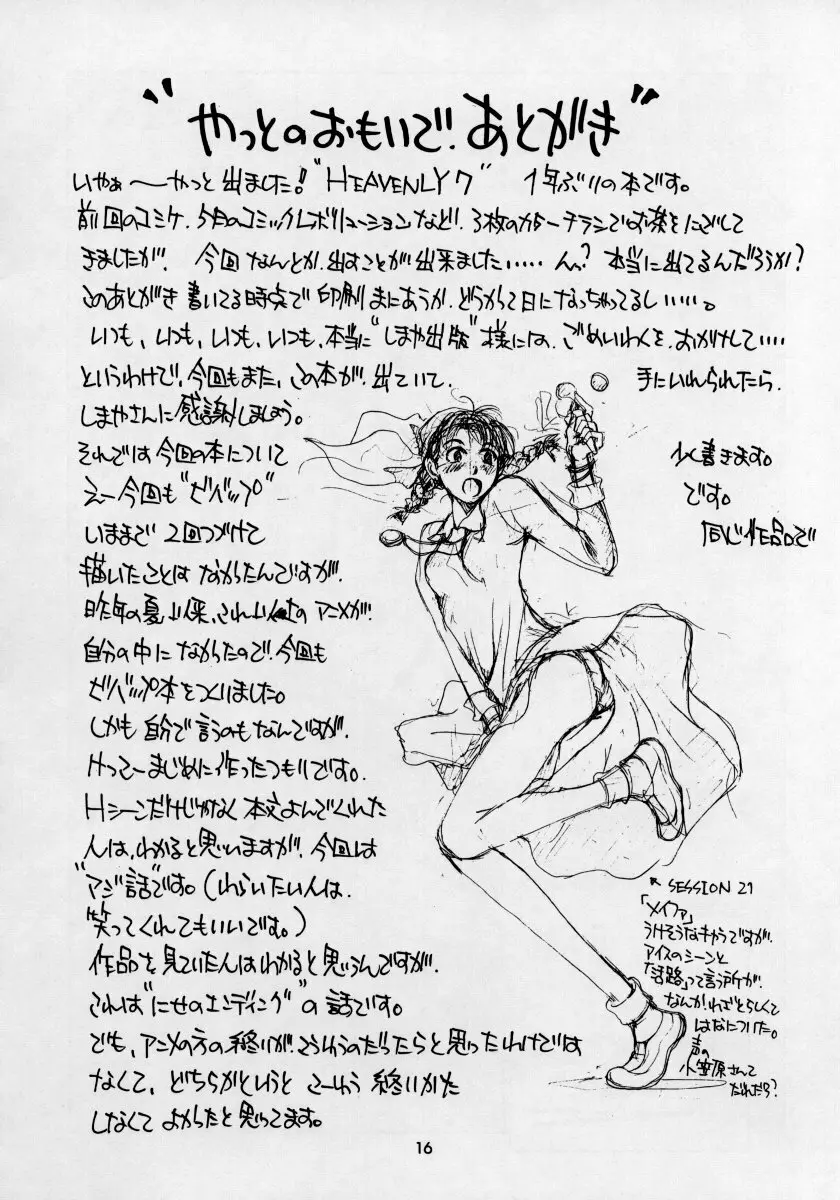 "やっとのおもいで!あとがき"
いやぁ〜やっと出ました!"HEAVENLY 7" 1年ぶりの本です。
前回のコミケ、5月のコミックレボリューションなど!、3枚のカラーチラシでお茶をにごして
きましたが、今回なんとか、出すことが出来ました……ん?本当に出てるんだろうか?
このあとがき書いてる時点で印刷まにあうか、どうかって日になっちゃってるし……。
いつも、いつも、いつも、いつも、本当に"しまや出版"様には、ごめいわくを、おかけして……
というわけで、今回もまた、この本が、出ていて、手にいれられたら、
しまやさんに感謝しましょう。
それでは今回の本について少く書きます。
えー今回も"ビバップ"です。
いままで2回つづけて同じ作品で
描いたことはなかったんですが、
昨年の夏以来、これ以上のアニメが、
自分の中になかったので、今回も
ビバップ本をつくりました。
しかも自分で言うのもなんですが、
けっこーまじめに作ったつもりです。
Hシーンだけじゃなく本文よんでくれた
人は、わかると思いますが、今回は
"マジ話"です。(わらいたい人は、
笑ってくれてもいいです。)
作品を見ていた人はわかると思うんですが、
これは"にせのエンディング"の話です。
でも、アニメの方の終りが、こういうのだったらと思ったわけでは
なくて、どちらかというとこーゆう終いかた
しなくてよかったと思ってます。
SESSION 21
「メイファ」
うけそうなキャラですが、
アイスのシーンと
「活路」って言う所が、
なんか、わざとらしくて
はなについた。
声の
小笠原さんて
だれだろ?
16